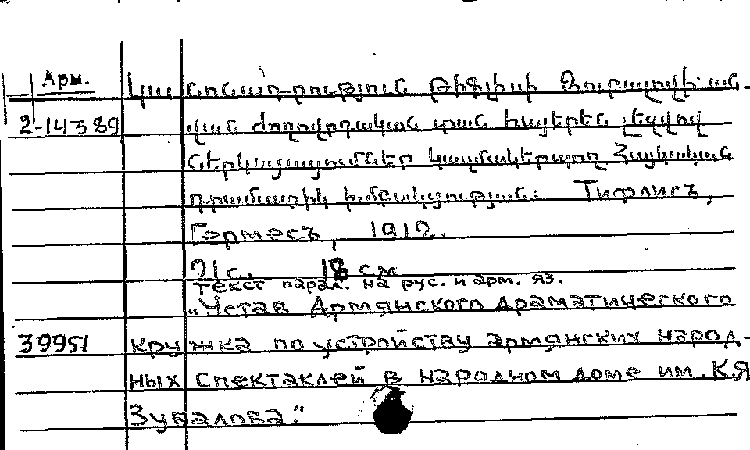 Арм.
Կանոնադրություն Թիֆլիսի Զուբալովի ան-
2-14389 վան ժողովրդական տան հայերեն լեզվով
ներկայացումներ կազմակերպող Հայկական
դրամատիկ խմբակցության: Тифлисъ,
Гермесъ, 1912.
21с. 18 см
Текст парал. на рус. и арм. яз.
„Устав Армянского Драматического
39951 кружка по устройству армянских народ-
ных спектаклей в народном доме им. К.Я
Зубалова."